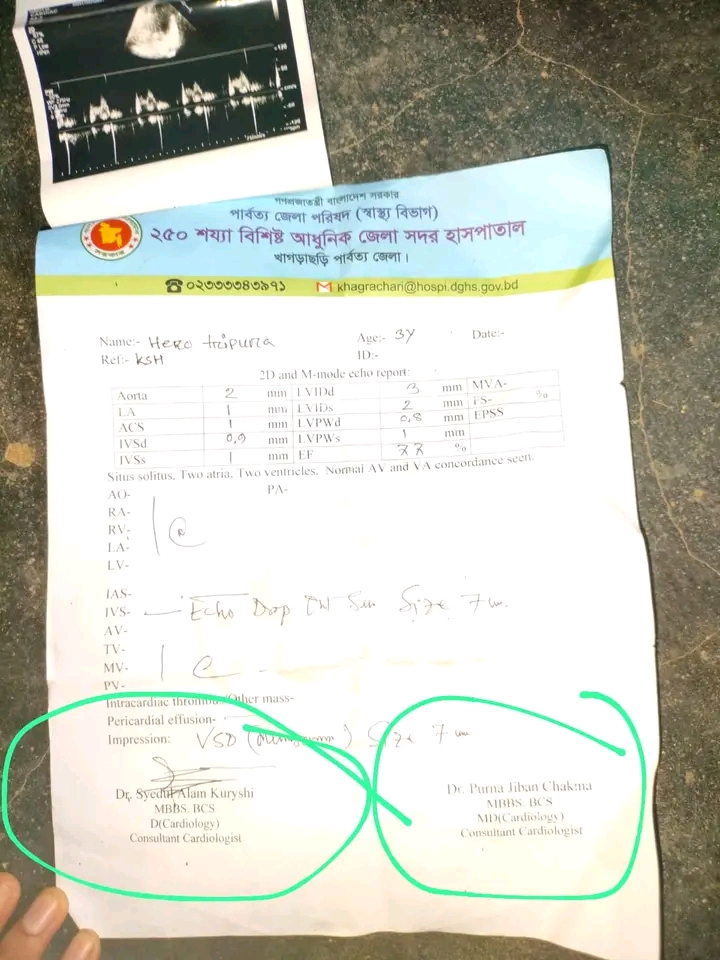 গণপ্রজাতন্ত্রী বাংলাদেশ সরকার
পার্বত্য জেলা পরিষদ (স্বাস্থ্য বিভাগ)
২৫০ শয্যা বিশিষ্ট আধুনিক জেলা সদর হাসপাতাল
খাগড়াছড়ি পার্বত্য জেলা।
০২৩৩৩৩৪৩৯৭১ khagrachari@hospi.dghs.gov.bd
Name:- Hero tripura Age:- 3Y Date:-
Ref:- KSH ID:-
2D and M-mode echo report:
Aorta 2 mm LVIDd 3 mm MVA-
LA 1 mm LVIDs 2 mm FS- %
ACS 1 mm LVPWd 0,8 mm EPSS
IVSd 0,9 mm LVPWs 1 mm
IVSs 1 mm EF 77 %
Situs solitus, Two atria, Two ventricles. Normal AV and VA concordance seen.
AO- PA-
RA-
RV-
LA-
LV-
IAS-
IVS- Echo Drop Size 7
AV-
TV-
MV-
PV-
Intracardiac thrombus/Other mass-
Pericardial effusion-
Impression: VSD Size 7
Dr. Syedul Alam Kuryshi
MBBS. BCS
D(Cardiology)
Consultant Cardiologist
Dr. Purna Jiban Chakma
MBBS. BCS
MD(Cardiology)
Consultant Cardiologist